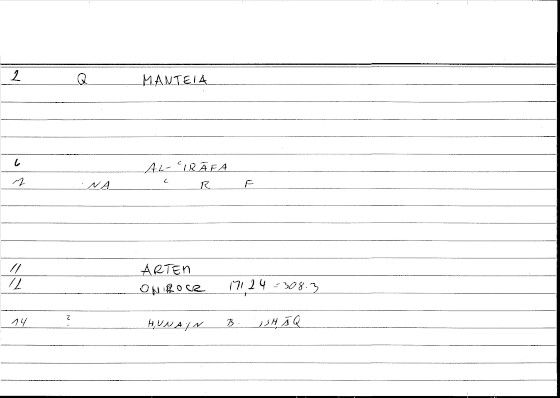 2 Q MANTEIA
6 AL-ʿIRĀFA
7 NA ʿ R F
11 ARTEM
12 ONIROCR 171,24 = 308.3
14 ? ḤUNAYN B. ISḤĀQ